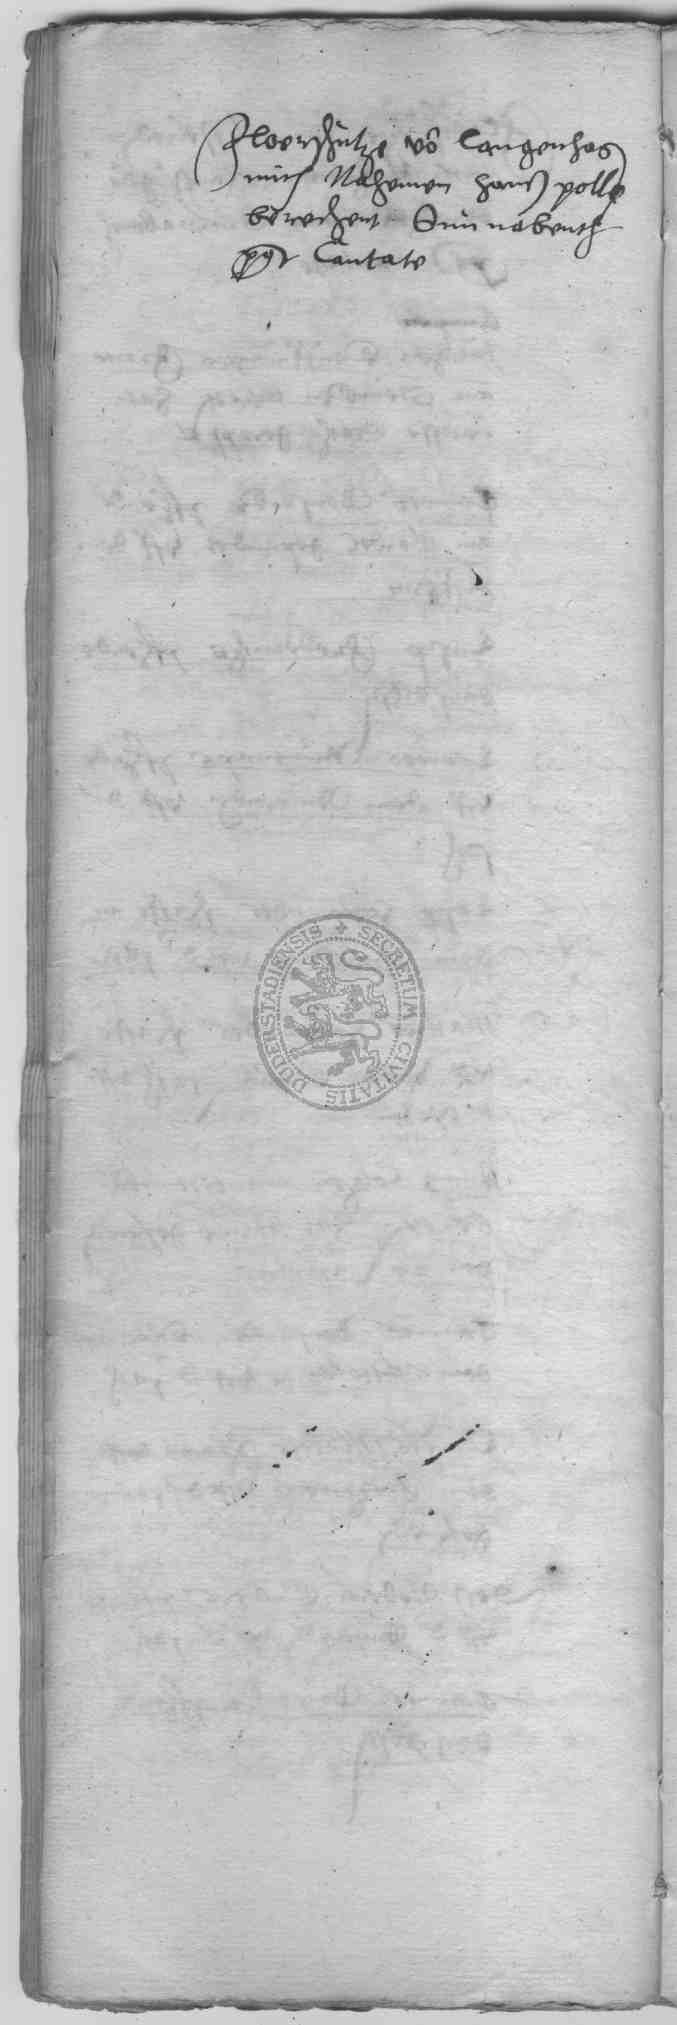 Floerschutze vô Langenhag
mith Nahemen hans polle
berechent Sunnabenth
pꝰt Cantate
SECRETUM CIVITATIS DUDERSTADIENSIS